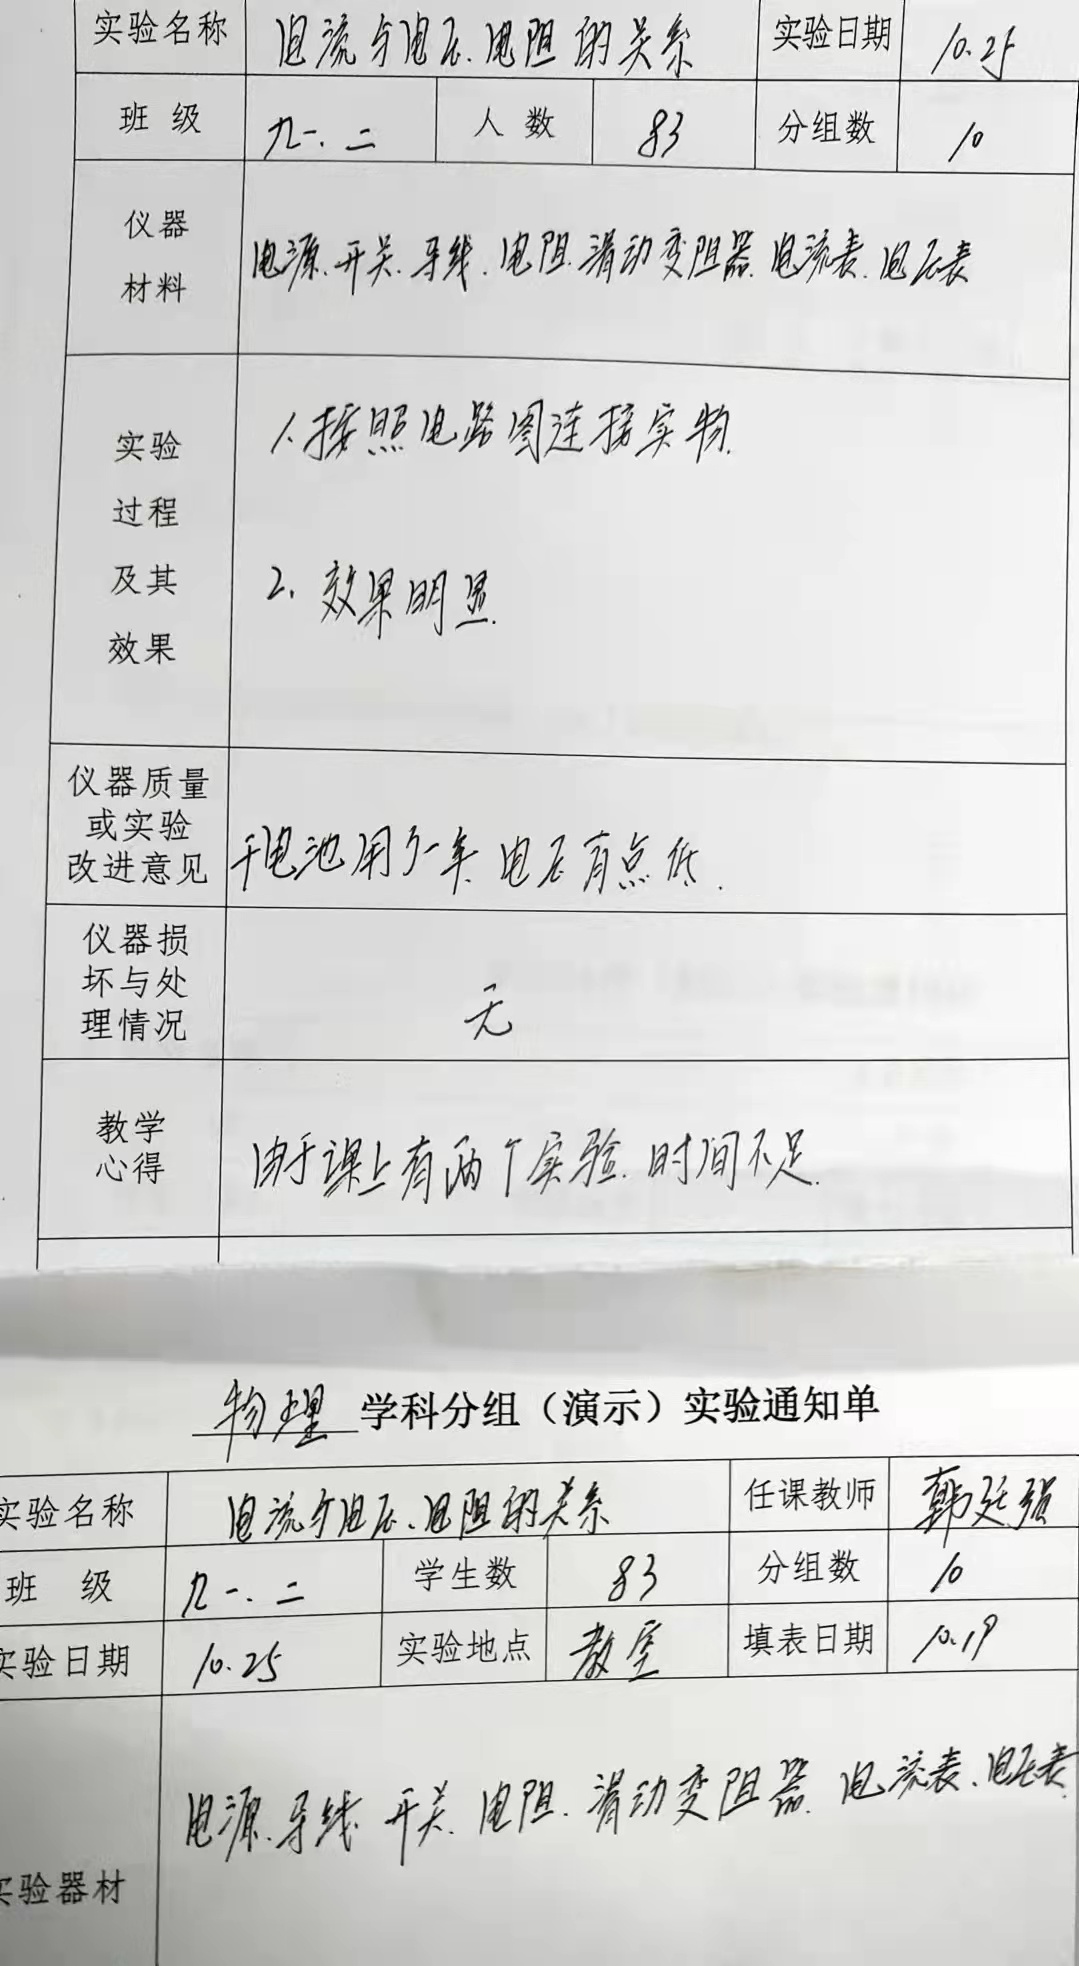 实验名称 电流与电压、电阻的关系 实验日期 10.25
班 级 九一、二 人 数 83 分组数 10
仪器
材料
电源、开关、导线、电阻、滑动变阻器、电流表、电压表
实验
过程
及其
效果
1、按照电路图连接实物.
2、效果明显.
仪器质量
或实验
改进意见
干电池用了一年,电压有点低.
仪器损
坏与处
理情况
无
教学
心得
由于课上有两个实验.时间不足.
物理 学科分组（演示）实验通知单
实验名称 电流与电压、电阻的关系 任课教师 韩廷强
班 级 九一、二 学生数 83 分组数 10
实验日期 10.25 实验地点 教室 填表日期 10.19
实验器材
电源、导线、开关、电阻、滑动变阻器、电流表、电压表.